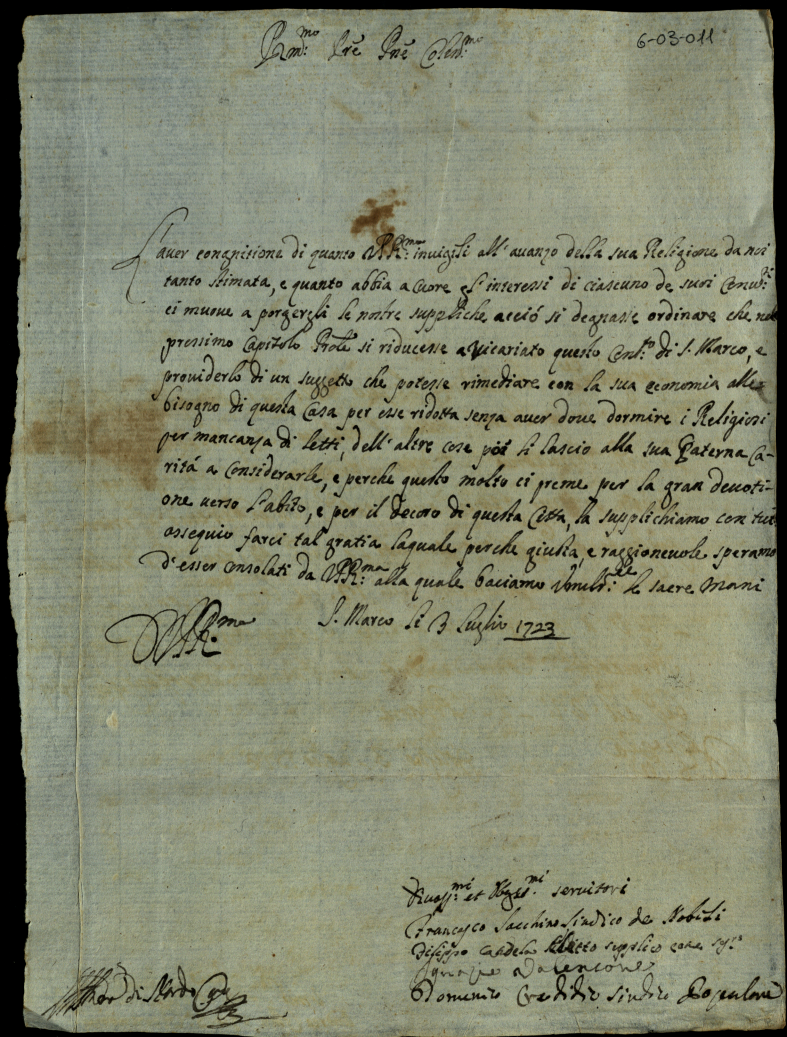 6-03-011
R.mo Prē Pnē Colen.mo
L'aver cognitione di quanto V.P.R.ma invigili all'avanzo della sua Religione da noi
tanto stimata, e quanto abbia a cuore gl'interessi di ciascuno de suoi Conv.ti
ci muove a porgergli le nostre suppliche acciò si degnasse ordinare che nel
prossimo Capitolo Prōle si riducesse a Vicariato questo Conv.to di S. Marco, e
providerlo di un suggetto che potesse rimediare con la sua economia alle
bisogno di questa Casa per esse ridotta senza aver dove dormire i Religiosi
per mancanza di letti, dell'altre cose poi si lascio alla sua Paterna Ca-
rità a considerarle, e perche questo molto ci preme per la gran devoti-
one verso l'abito, e per il decoro di questa Citta, la supplichiamo con tut
ossequio farci tal gratia laquale perche giusta, e raggionevole speramo
d'esser consolati da V.P.R.ma alla quale baciamo le sacre mani
S. Marco li 3 Luglio 1723
V.P.R.ma
servitori
Francesco Sacchino Sindico de Nobili
supplico come
Domenico Sindico Popolare
di Nardo